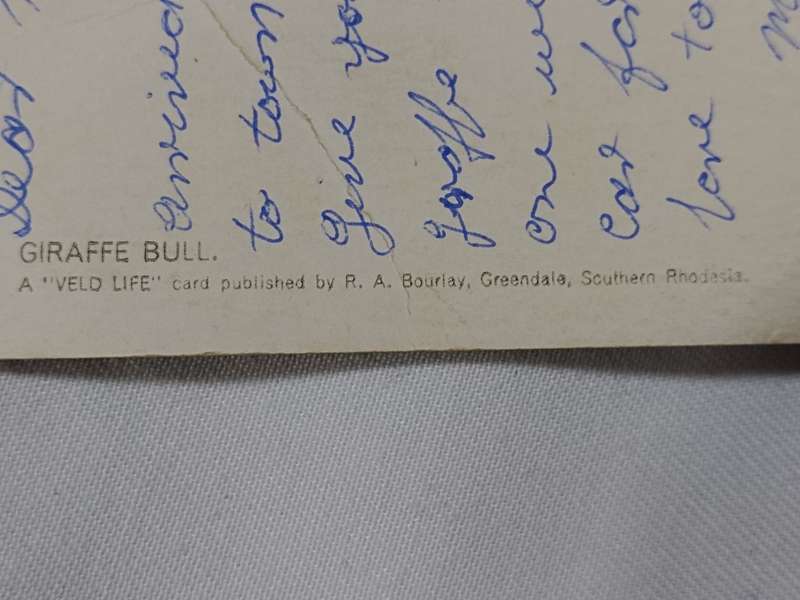 Dear
arrived
to town
give yo
garaffe
one we
car for
love to
GIRAFFE BULL.
A "VELD LIFE" card published by R. A. Bourlay, Greendale, Southern Rhodesia.